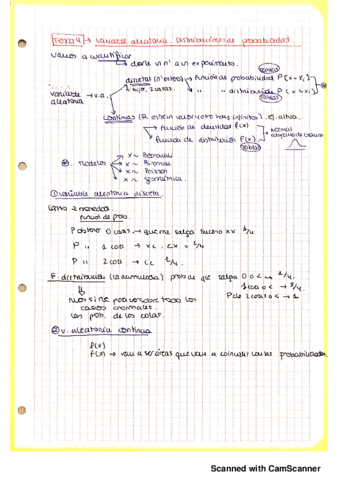 Tema 4 → variable aleatoria. Distribuciones de probabilidad.
vamos a cuantificar
→ darle un nº a un experimento.
discretas (nº enteros) → Función de probabilidad P(x = xi)
1 hijo, 2 casas. → " " distribución P(x ≤ xi)
variable → v.a.
aleatoria
continuas
Función de densidad f(x)
Función de distribución F(x)
modelos
x ~ Bernoulli
x ~ Binomial
x ~ Poisson
x ~ geométrica
① variable aleatoria discreta.
Lanzo 2 monedas
función de prob.
P obtener 0 caras → que me salga suceso xx 1/4
P " 1 cara → xc, cx = 2/4
P " 2 cara → cc 1/4
F distribución (la acumulada): prob de que salga 0 o < → 1/4.
1 cara o < → 3/4
P de 2 caras o < → 1
Nos sirve para
casos anormales.
las prob. de las colas.
② v. aleatoria continua
f(x)
F(x) → van a ser áreas que van a coincidir con las probabilidades.
Scanned with CamScanner